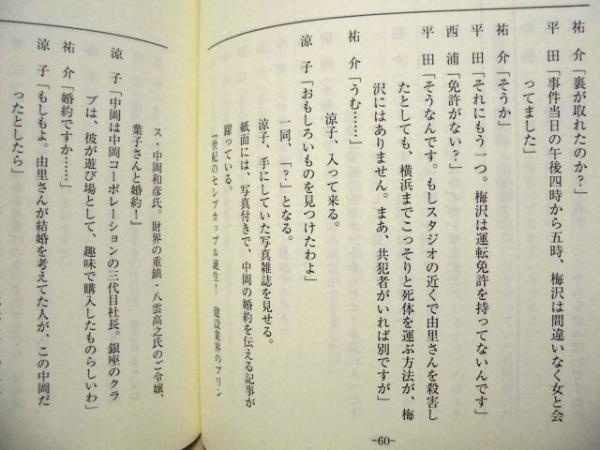 祐 介「裏が取れたのか?」
平 田「事件当日の午後四時から五時、梅沢は間違いなく女と会
ってました」
祐 介「そうか」
平 田「それにもう一つ。梅沢は運転免許を持ってないんです」
西 浦「免許がない?」
平 田「そうなんです。もしスタジオの近くで由里さんを殺害し
たとしても、横浜までこっそりと死体を運ぶ方法が、梅
沢にはありません。まあ、共犯者がいれば別ですが」
祐 介「うむ……」
涼子、入って来る。
涼 子「おもしろいものを見つけたわよ」
一同、「?」となる。
涼子、手にしていた写真雑誌を見せる。
紙面には、写真付きで、中岡の婚約を伝える記事が
躍っている。
『世紀のセレブカップル誕生! 建設業界のプリン
-60-
ス・中岡和彦氏。財界の重鎮・八雲高之氏のご令嬢、
葉子さんと婚約!
涼 子「中岡は中岡コーポレーションの三代目社長。銀座のクラ
ブは、彼が遊び場として、趣味で購入したものらしいわ」
祐 介「婚約ですか……」
涼 子「もしもよ。由里さんが結婚を考えてた人が、この中岡だ
ったとしたら」